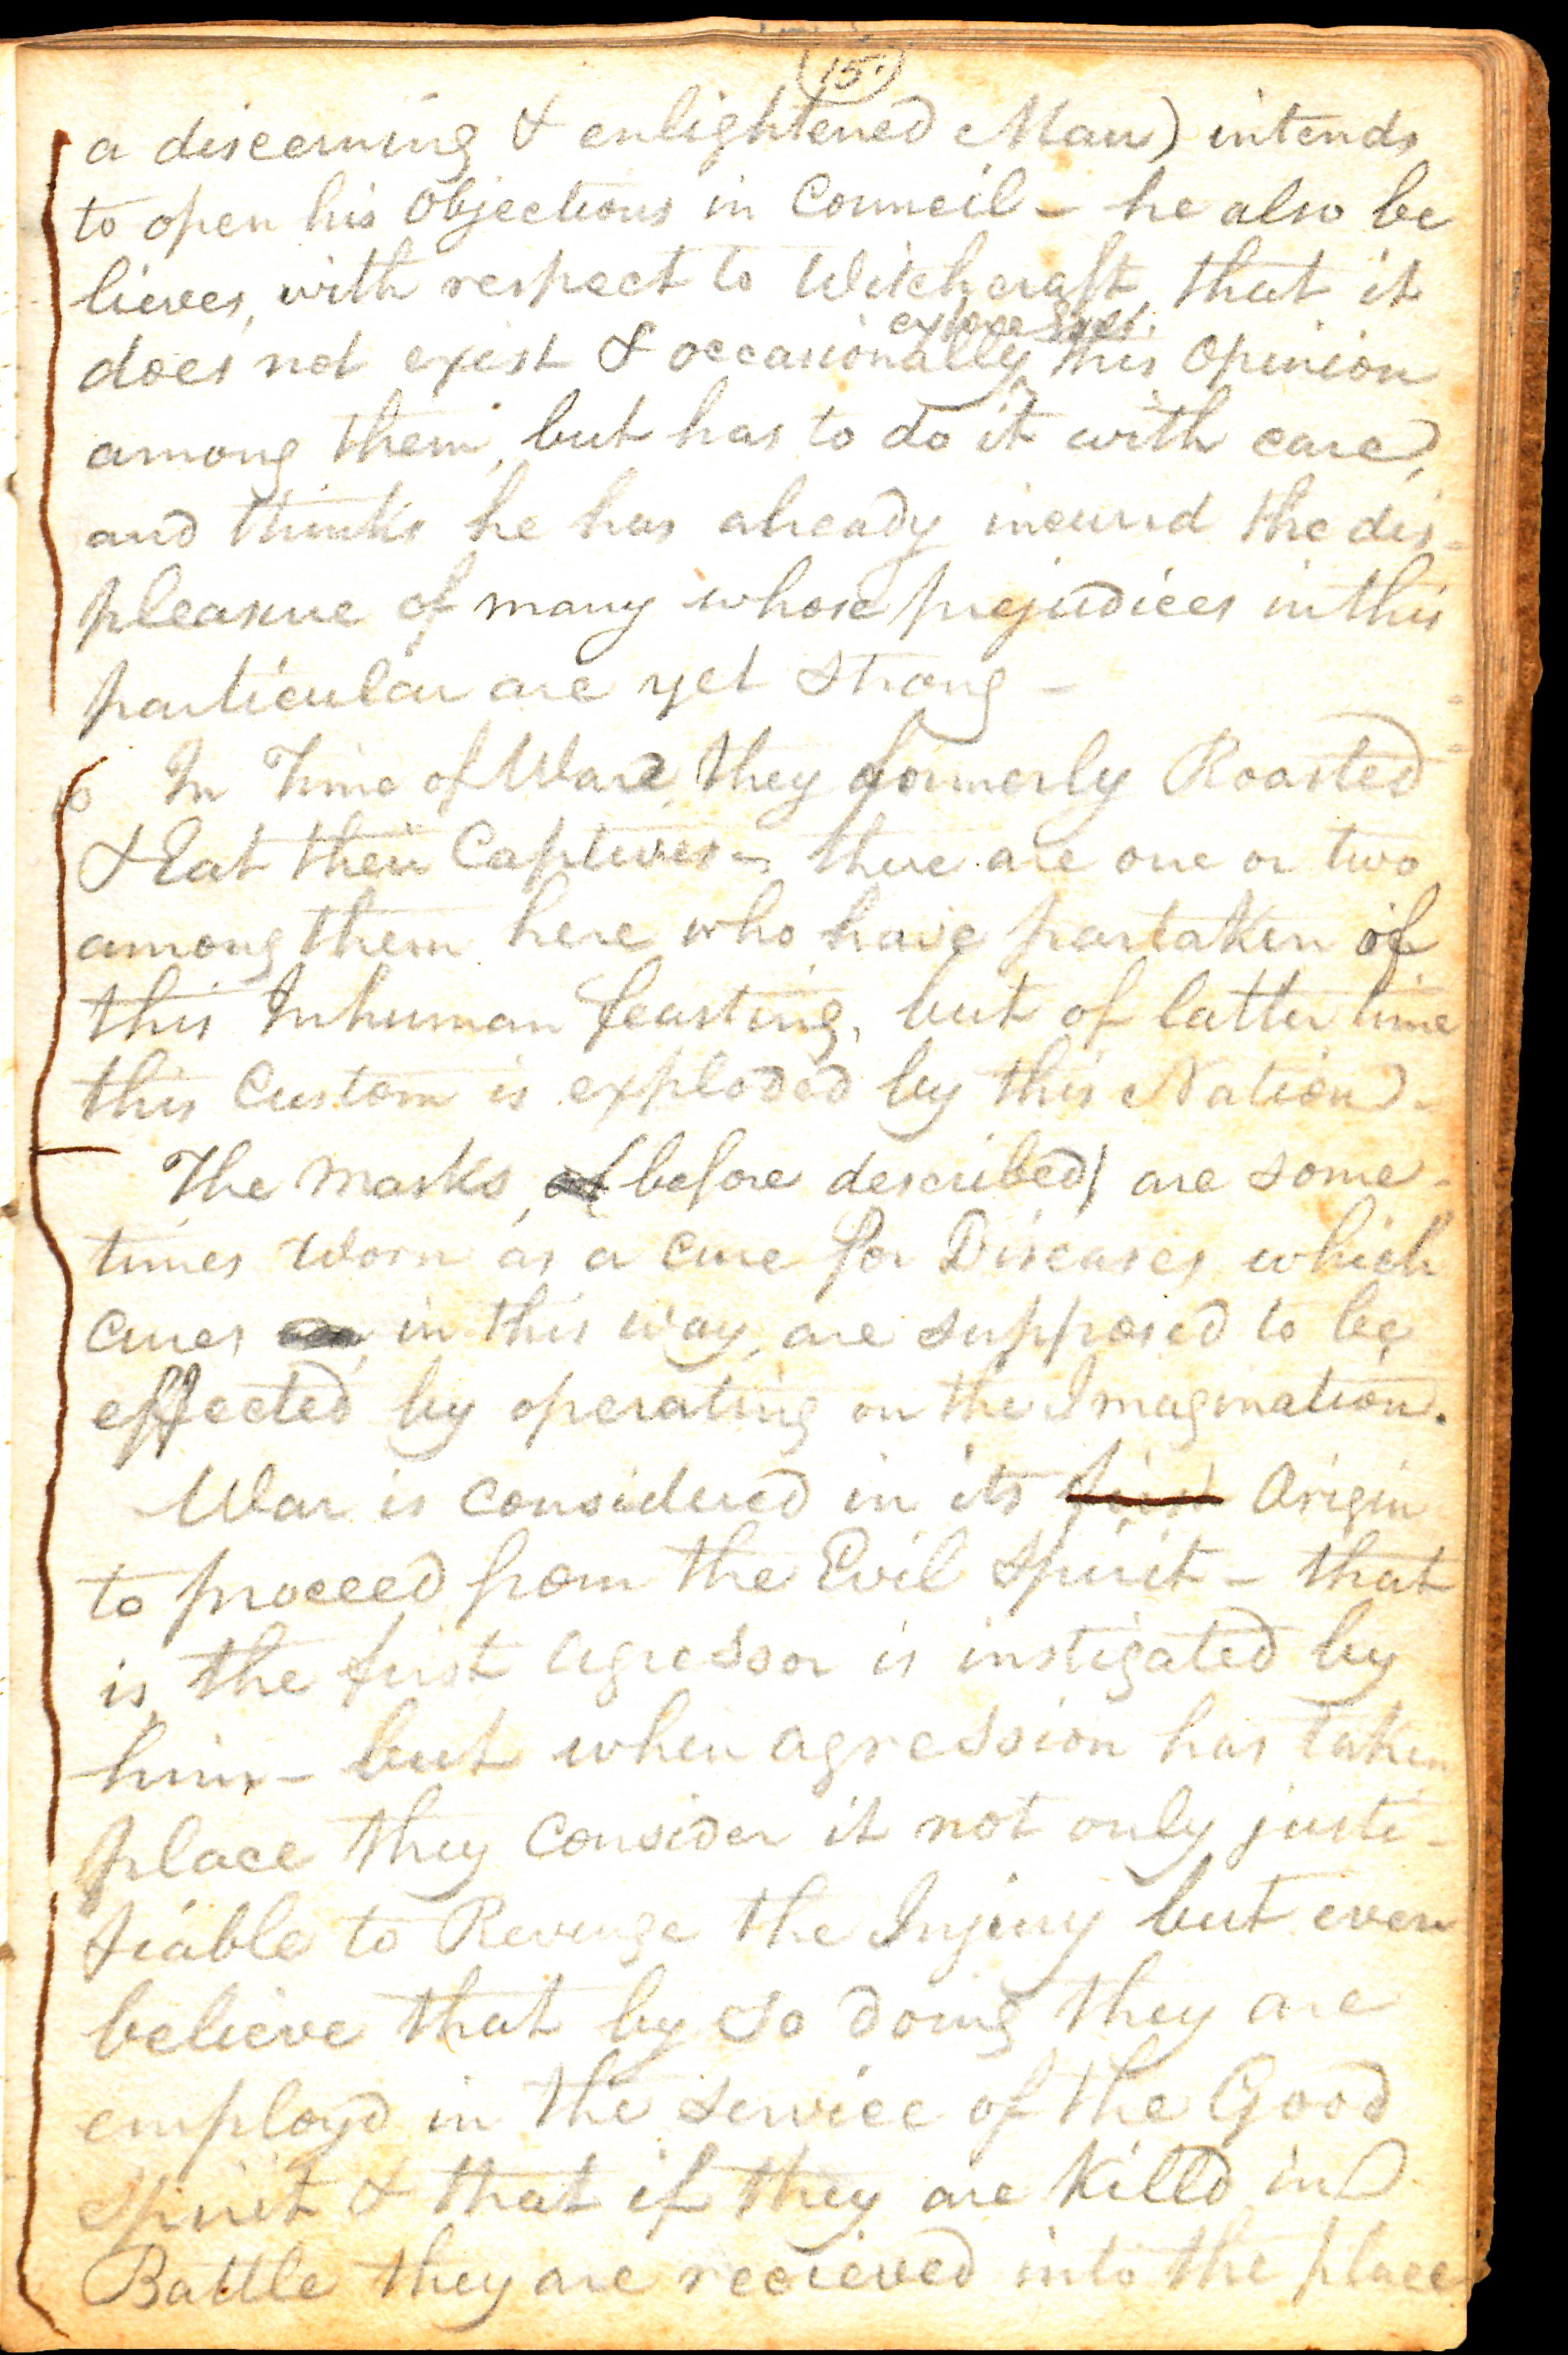 (15.)
a discerning & enlightened Man) intends
to open his Objections in Council - he also be
lieves, with respect to Witchcraft, that it
expresses
does not exist & occasionally this Opinion
among them, but has to do it with care,
and thinks he has already incurrd the dis-
pleasure of many whose prejudices in this
particular are yet strong -
In Time of War, they formerly Roasted
& Eat their Captives - there are one or two
among them here who have partaken of
this Inhuman feasting, but of latter time
this Custom is exploded by this Nation -
The Masks, (before described) are some-
times Worn as a cure for Diseases which
cures in this way, are supposed to be
effected by operating on the Imagination.
War is considered in its first Origin
to proceed from the Evil Spirit - that
is, the first agressor is instigated by
him - but when agression has taken
place they consider it not only justi-
fiable to Revenge the Injury but even
believe that by so doing they are
employd in the service of the Good
Spirit & that if they are killd in
Battle they are recieved into the place